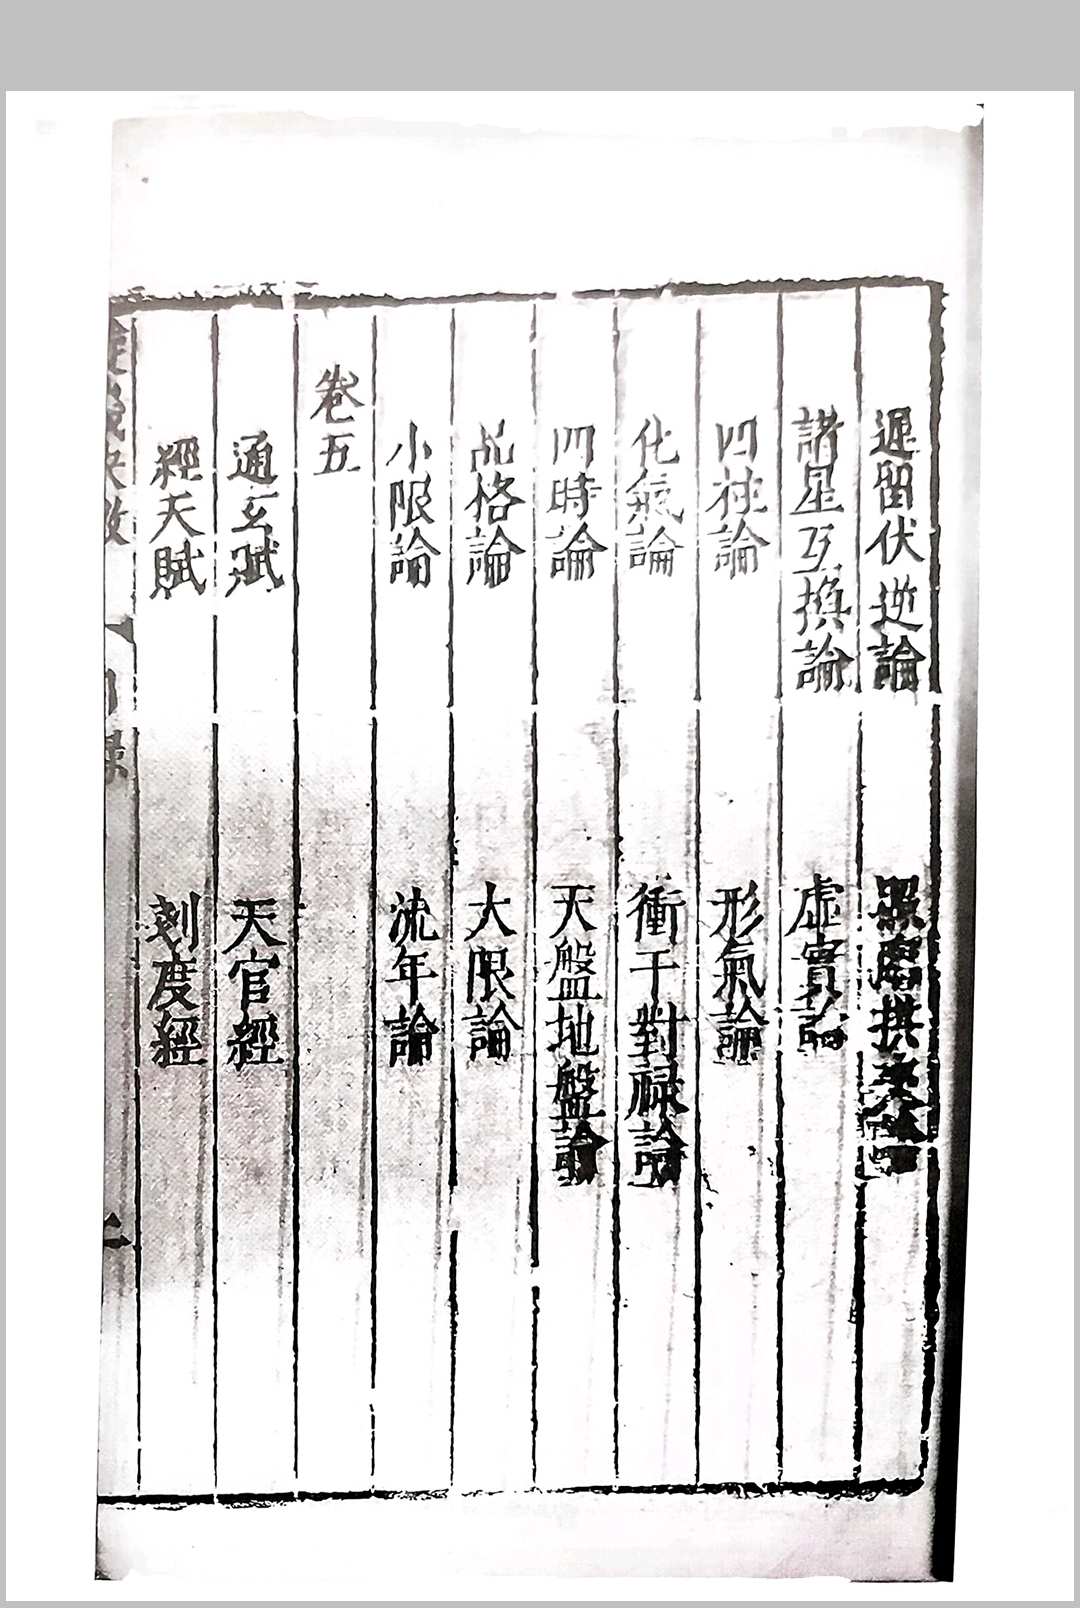 遲留伏逆論　照臨拱夾論
諸星互換論　虛實論
四柱論　形氣論
化氣論　衝干對祿論
四時論　天盤地盤論
品格論　大限論
小限論　流年論
卷五
通玄賦　天官經
經天賦　刻度經
目錄
二